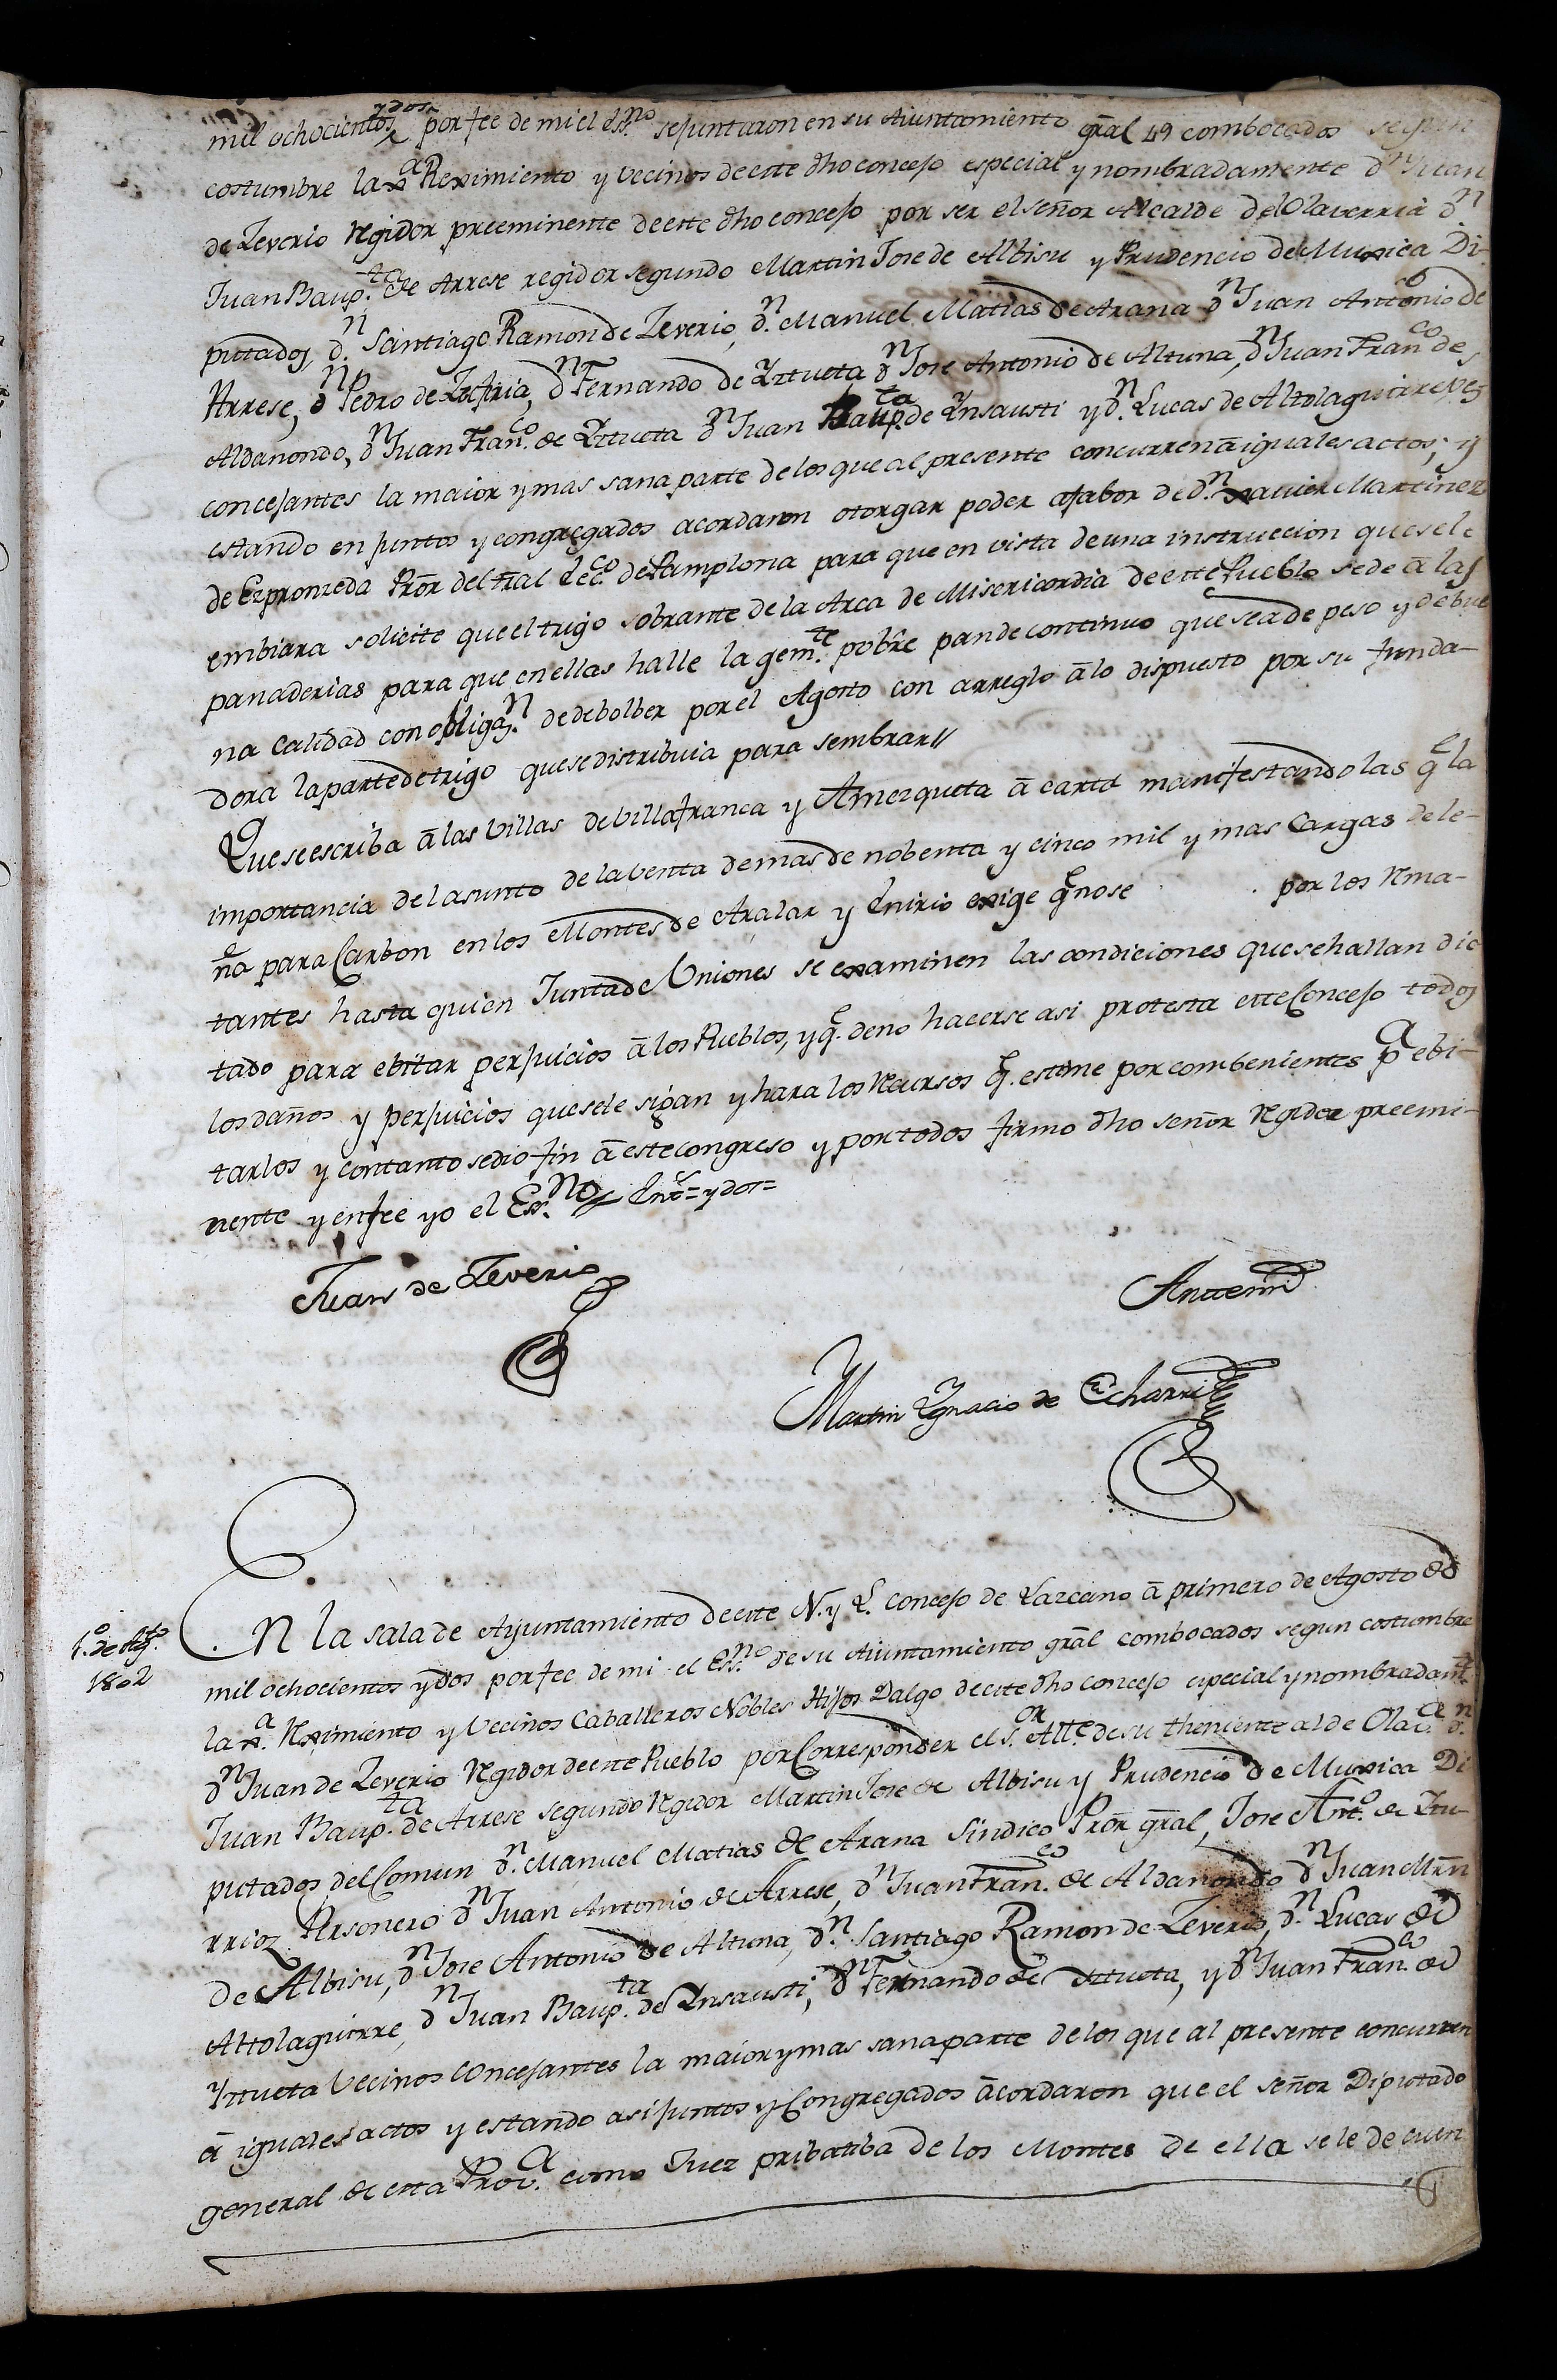 mil ochocientos ydos por fee de mi el Ess.no se juntaron en su Aiuntamiento gral combocados segun
costumbre la Reximiento y vecinos de este dho concejo especial y nombradamente d.n Juan
de Zeverio regidor preeminente de este dho concejo por ser el señor Alcalde de Olaverria d.n
Juan Baup.ta de Arrese regidor segundo Martin Jose de Albisu y Prudencio de Muxica Di-
putados, d.n Santiago Ramon de Zeverio, d.n Manuel Matias de Arana d.n Juan Antonio de
Arrese, d.n Pedro de, d.n Fernando de Yztueta d.n Jose Antonio de Altuna, d.n Juan Fran.co de
Aldanondo, d.n Juan Fran.co de Yztueta d.n Juan Baup.ta de Ynsausti y d.n Lucas de Altolaguirre ve.s
concejantes la maior y mas sana parte de los que al presente concurren ā iguales actos; y
estando en juntos y congregados acordaron otorgar poder afabor de d.n Xavier Martinez
de Ezpronzeda Pror del tral Ecc.co de Pamplona para que en vista de una instruccion que se le
embiara solicite que el trigo sobrante de la Arca de Misericordia de este Pueblo se de ā las
panaderias para que en ellas halle la gem.te pobre pan de continuo que sea de peso y de bue
na calidad con obligaz.n de debolber por el Agosto con arreglo ālo dispuesto por su funda-
dora la parte de trigo que se distribuia para sembrar//
Que se escriba ā las Villas de Villafranca y Amezqueta ā carta manifestandolas q.e la
importancia del asunto de la venta de mas de nobenta y cinco mil y mas Cargas de le-
ña para Carbon en los Montes de Aralar y Enirio exige q.e no se por los Rma-
tantes hasta quien Junta de Uniones se examinen las condiciones que se hallan dic
tado para ebitar perjuicios ā los Pueblos, y q.e de no hacerse asi protesta este Concejo todos
los daños y perjuicios que se le sigan y hara los Recursos q.e estime por combenientes p.a ebi-
tarlos y con tanto se dio fin ā este congreso y por todos firmo dho señor Regidor preemi-
nente y enfee yo el Es.no Ent.e = ydos =
Juan de Zeverio
Antemi
Martin Ygnacio de Echarri
1.o de Ag.to
1802
En la sala de Ayuntamiento de este N. y L. concejo de Lazcano ā primero de Agosto de
mil ochocientos ydos por fee de mi el Ess.no de su Aiuntamiento gral combocados segun costumbre
la Reximiento y vecinos Caballeros Nobles Hijos Dalgo de este dho concejo especial y nombradam.te
d.n Juan de Zeverio Regidor de este Pueblo por Corresponder el s.or Alle. de su theniente al de Olav.a d.n
Juan Baup.ta de Arrese segundo Regidor Martin Jose de Albisu y Prudencio de Muxica Di
putados del Comun d.n Manuel Matias de Arana Sindico Pror gral, Jose Ant.o de Ytu-
rrioz Personero d.n Juan Antonio de Arrese, d.n Juan Fran.co de Aldanondo d.n Juan Mrn
de Albisu, d.n Jose Antonio de Altuna, d.n Santiago Ramon de Zeverio, d.n Lucas de
Altolaguirre, d.n Juan Baup.ta de Ynsausti, d.n Fernando de Yztueta, y d.n Juan Fran.co de
Yztueta Vecinos concejantes la maior y mas sana parte de los que al presente concurren
ā iguales actos y estando asi juntos y Congregados ācordaron que el señor Diputado
general de esta Prov.a como Juez pribatiba de los Montes de ella se le de cuen